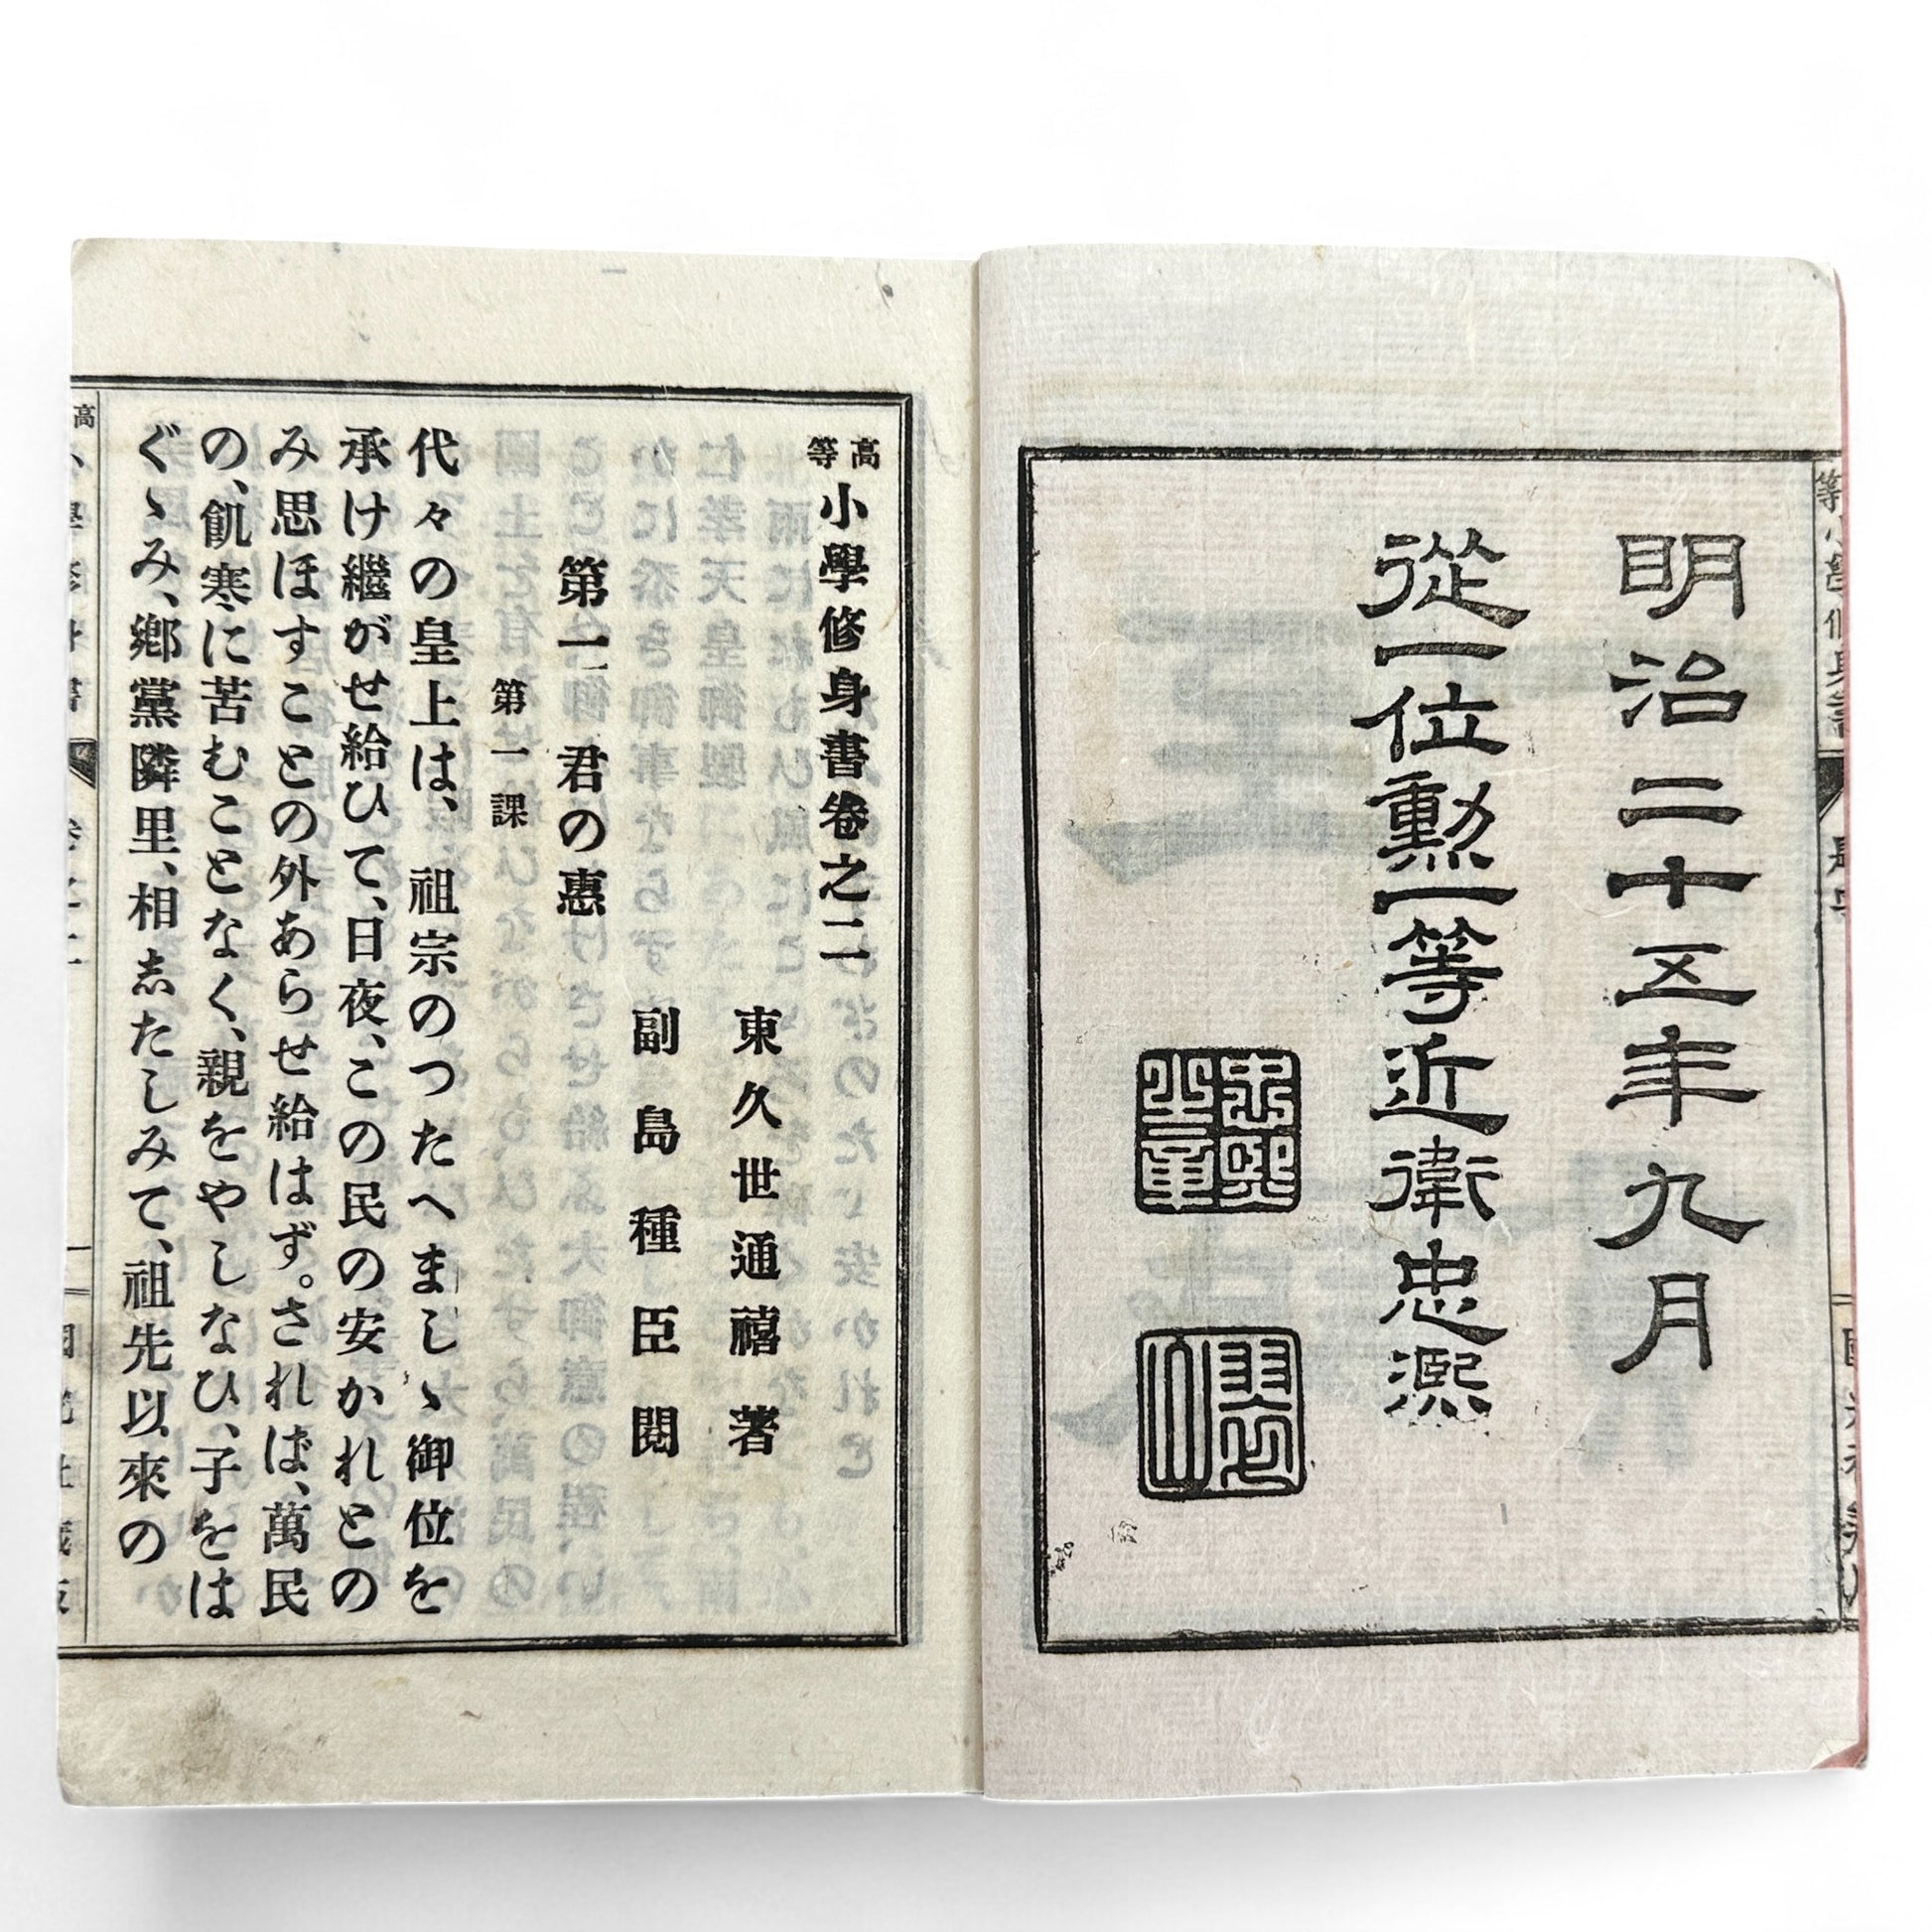 明治二十五年九月
從一位勲一等近衛忠熙
高等小學修身書卷之二
東久世通禧著
副島種臣閲
第一 君の惠
第一課
代々の皇上は、祖宗のつたへましゝ御位を
承け繼がせ給ひて、日夜、この民の安かれとの
み思ほすことの外あらせ給はず。されば、萬民
の、飢寒に苦むことなく、親をやしなひ、子をは
ぐゝみ、鄕黨隣里、相志たしみて、祖先以來の